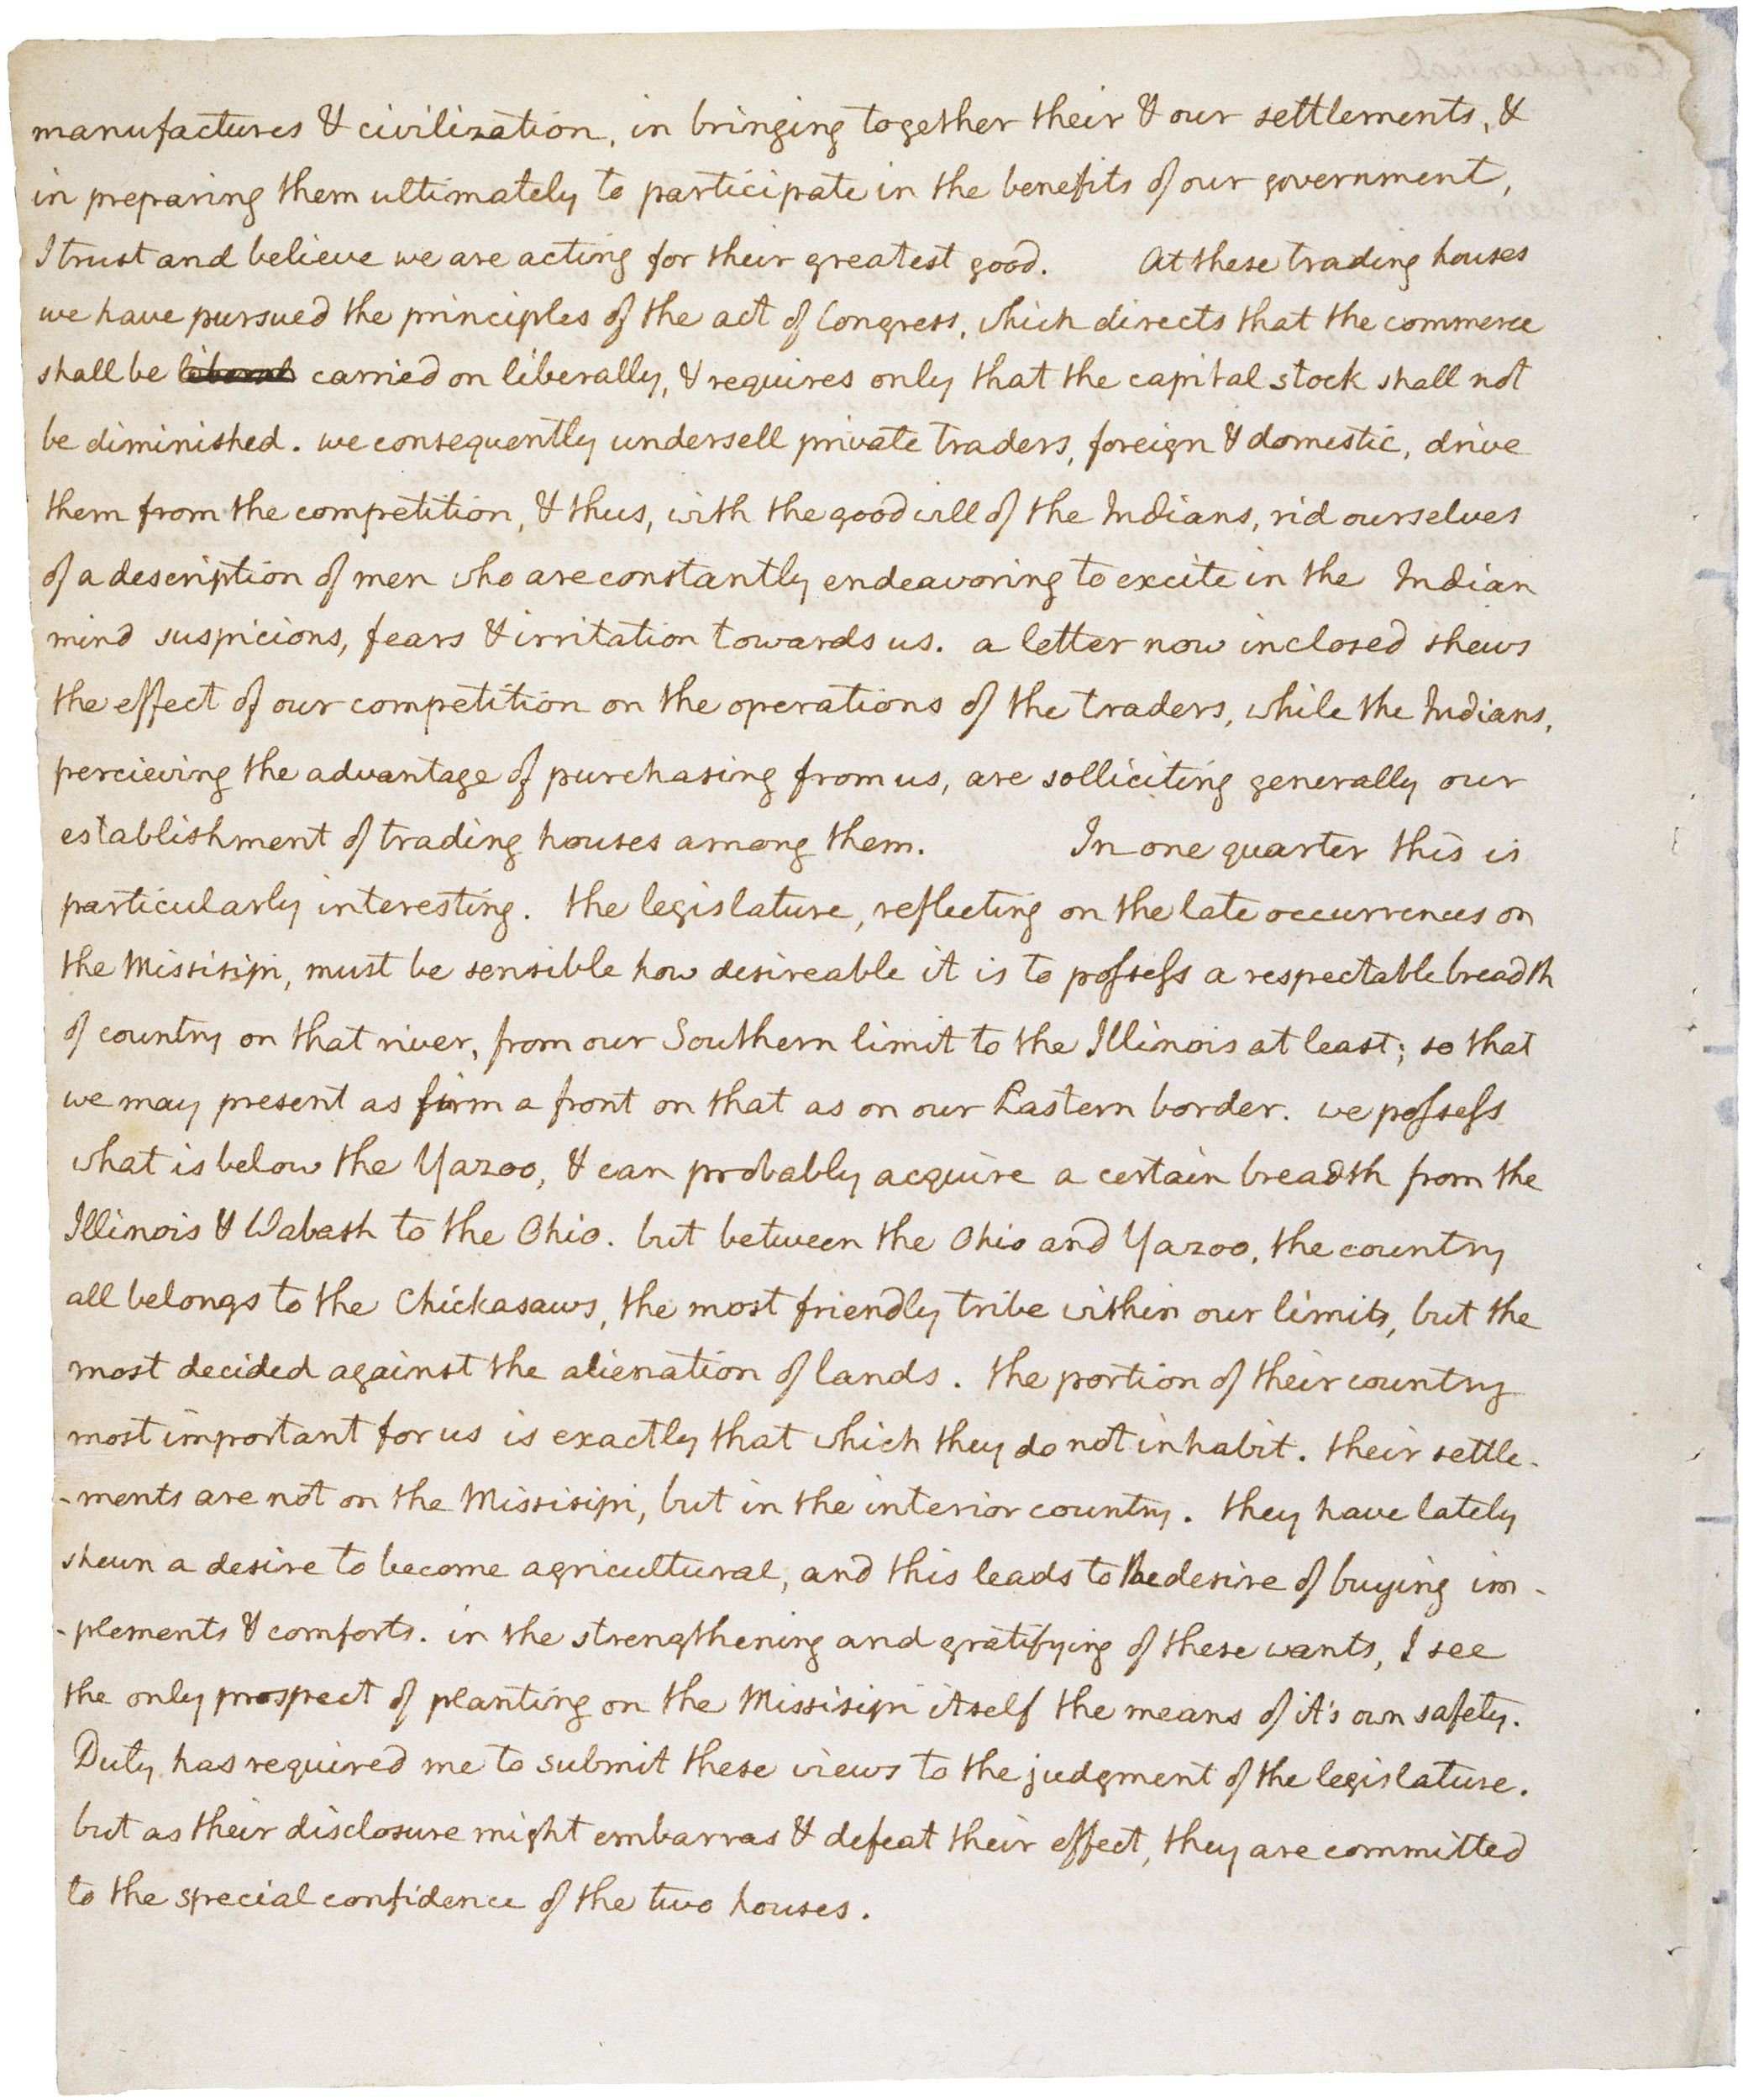 manufactures & civilization, in bringing together their & our settlements, &
in preparing them ultimately to participate in the benefits of our government,
I trust and believe we are acting for their greatest good. At these trading houses
we have pursued the principles of the act of Congress, which directs that the commerce
shall be liberal carried on liberally, & requires only that the capital stock shall not
be diminished. we consequently undersell private traders, foreign & domestic, drive
them from the competition, & thus, with the good will of the Indians, rid ourselves
of a description of men who are constantly endeavoring to excite in the Indian
mind suspicions, fears & irritation towards us. a letter now inclosed shews
the effect of our competition on the operations of the traders, while the Indians,
percieving the advantage of purchasing from us, are solliciting generally our
establishment of trading houses among them. In one quarter this is
particularly interesting. the legislature, reflecting on the late occurrences on
the Missisipi, must be sensible how desireable it is to possess a respectable breadth
of country on that river, from our Southern limit to the Illinois at least; so that
we may present as firm a front on that as on our Eastern border. we possess
what is below the Yazoo, & can probably acquire a certain breadth from the
Illinois & Wabash to the Ohio. but between the Ohio and Yazoo, the country
all belongs to the Chickasaws, the most friendly tribe within our limits, but the
most decided against the alienation of lands. the portion of their country
most important for us is exactly that which they do not inhabit. their settle-
-ments are not on the Missisipi, but in the interior country. they have lately
shewn a desire to become agricultural, and this leads to the desire of buying im-
-plements & comforts. in the strengthening and gratifying of these wants, I see
the only prospect of planting on the Missisipi itself the means of it's own safety.
Duty has required me to submit these views to the judgment of the legislature.
but as their disclosure might embarras & defeat their effect, they are committed
to the special confidence of the two houses.